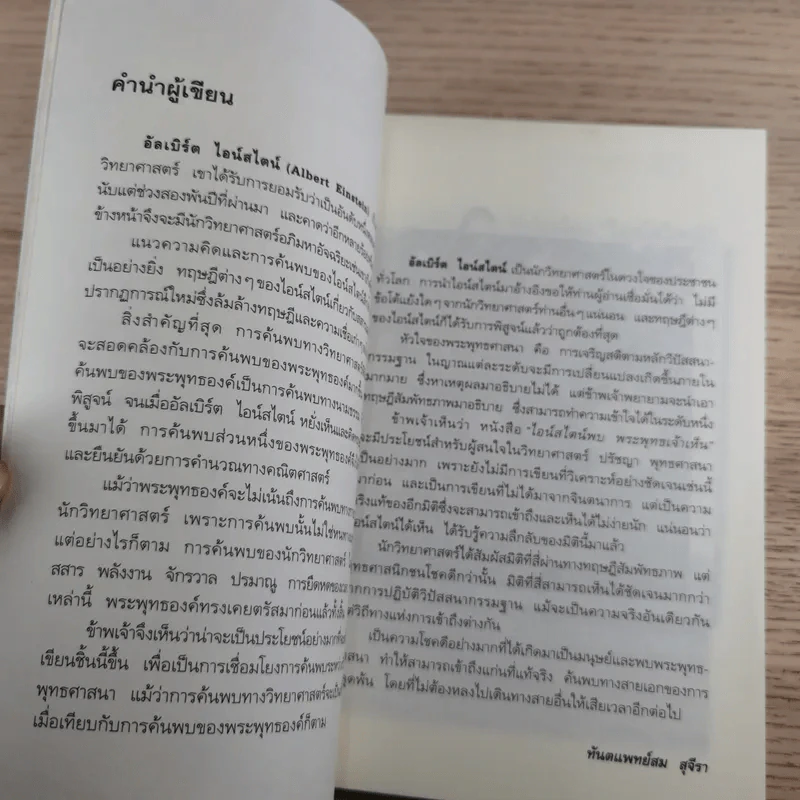 คำนำผู้เขียน
อัลเบิร์ต ไอน์สไตน์ (Albert Einstein)
วิทยาศาสตร์ เขาได้รับการยอมรับว่าเป็นอันดับหนึ่ง
นับแต่ช่วงสองพันปีที่ผ่านมา และคาดว่าอีกหลายร้อย
ข้างหน้าจึงจะมีนักวิทยาศาสตร์อภิมหาอัจฉริยะเช่น
แนวความคิดและการค้นพบของไอน์สไตน์
เป็นอย่างยิ่ง ทฤษฎีต่างๆของไอน์สไตน์เกี่ยวกับ
ปรากฏการณ์ใหม่ซึ่งล้มล้างทฤษฎีและความเชื่อ
สิ่งสำคัญที่สุด การค้นพบทางวิทยาศาสตร์
จะสอดคล้องกับการค้นพบของพระพุทธองค์
ค้นพบของพระพุทธองค์เป็นการค้นพบทางนามธรรม
พิสูจน์ จนเมื่ออัลเบิร์ต ไอน์สไตน์ หยั่งเห็นและ
ขึ้นมาได้ การค้นพบส่วนหนึ่งของพระพุทธองค์
และยืนยันด้วยการคำนวณทางคณิตศาสตร์
แม้ว่าพระพุทธองค์จะไม่เน้นถึงการค้นพบ
นักวิทยาศาสตร์ เพราะการค้นพบนั้นไม่ใช่หนทาง
แต่อย่างไรก็ตาม การค้นพบของนักวิทยาศาสตร์
สสาร พลังงาน จักรวาล ปรมาณู การยืดหดของ
เหล่านี้ พระพุทธองค์ทรงเคยตรัสมาก่อนแล้วทั้งสิ้น
ข้าพเจ้าจึงเห็นว่าน่าจะเป็นประโยชน์อย่างมาก
เขียนชิ้นนี้ขึ้น เพื่อเป็นการเชื่อมโยงการค้นพบ
พุทธศาสนา แม้ว่าการค้นพบทางวิทยาศาสตร์จะ
เมื่อเทียบกับการค้นพบของพระพุทธองค์ก็ตาม
อัลเบิร์ต ไอน์สไตน์ เป็นนักวิทยาศาสตร์ในดวงใจของประชาชน
ทั่วโลก การนำไอน์สไตน์มาอ้างอิงขอให้ท่านผู้อ่านเชื่อมั่นได้ว่า ไม่มี
ข้อโต้แย้งใดๆจากนักวิทยาศาสตร์ท่านอื่นๆแน่นอน และทฤษฎีต่างๆ
ของไอน์สไตน์ก็ได้รับการพิสูจน์แล้วว่าถูกต้องที่สุด
หัวใจของพระพุทธศาสนา คือ การเจริญสติตามหลักวิปัสสนา-
กรรมฐาน ในญาณแต่ละระดับจะมีการเปลี่ยนแปลงเกิดขึ้นภายใน
มากมาย ซึ่งหาเหตุผลมาอธิบายไม่ได้ แต่ข้าพเจ้าพยายามจะนำเอา
ทฤษฎีสัมพัทธภาพมาอธิบาย ซึ่งสามารถทำความเข้าใจได้ในระดับหนึ่ง
ข้าพเจ้าเห็นว่า หนังสือ "ไอน์สไตน์พบ พระพุทธเจ้าเห็น"
จะมีประโยชน์สำหรับผู้สนใจในวิทยาศาสตร์ ปรัชญา พุทธศาสนา
เป็นอย่างมาก เพราะยังไม่มีการเขียนที่วิเคราะห์อย่างชัดเจนเช่นนี้
มาก่อน และเป็นการเขียนที่ไม่ได้มาจากจินตนาการ แต่เป็นความ
จริงแท้ของอีกมิติซึ่งจะสามารถเข้าถึงและเห็นได้ไม่ง่ายนัก แน่นอนว่า
ไอน์สไตน์ได้เห็น ได้รับรู้ความลึกลับของมิตินี้มาแล้ว
นักวิทยาศาสตร์ได้สัมผัสมิติที่สี่ผ่านทางทฤษฎีสัมพัทธภาพ แต่
พุทธศาสนิกชนโชคดีกว่านั้น มิติที่สี่สามารถเห็นได้ชัดเจนมากกว่า
จากการปฏิบัติวิปัสสนากรรมฐาน แม้จะเป็นความจริงอันเดียวกัน
วิถีทางแห่งการเข้าถึงต่างกัน
เป็นความโชคดีอย่างมากที่ได้เกิดมาเป็นมนุษย์และพบพระพุทธ-
ศาสนา ทำให้สามารถเข้าถึงแก่นที่แท้จริง ค้นพบทางสายเอกของการ
หลุดพ้น โดยที่ไม่ต้องหลงไปเดินทางสายอื่นให้เสียเวลาอีกต่อไป
ทันตแพทย์สม สุจีรา